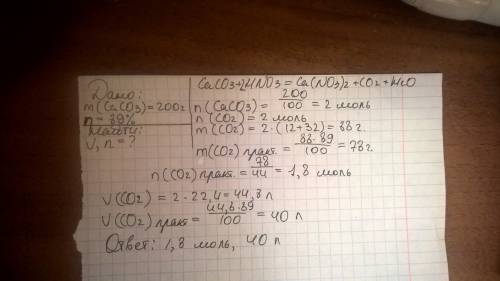 Дано:
m(CaCO3)=200г
n=89%
Найти:
V, n=?
CaCO3+2HNO3=Ca(NO3)2+CO2+H2O
n(CaCO3)=200/100=2 моль
n(CO2)=2 моль
m(CO2)=2·(12+32)=88г.
m(CO2)практ.=88·89/100=78г.
n(CO2)практ.=78/44=1,8 моль
V(CO2)=2·22,4=44,8 л
V(CO2)практ=44,8·89/100=40 л
Ответ: 1,8 моль, 40 л